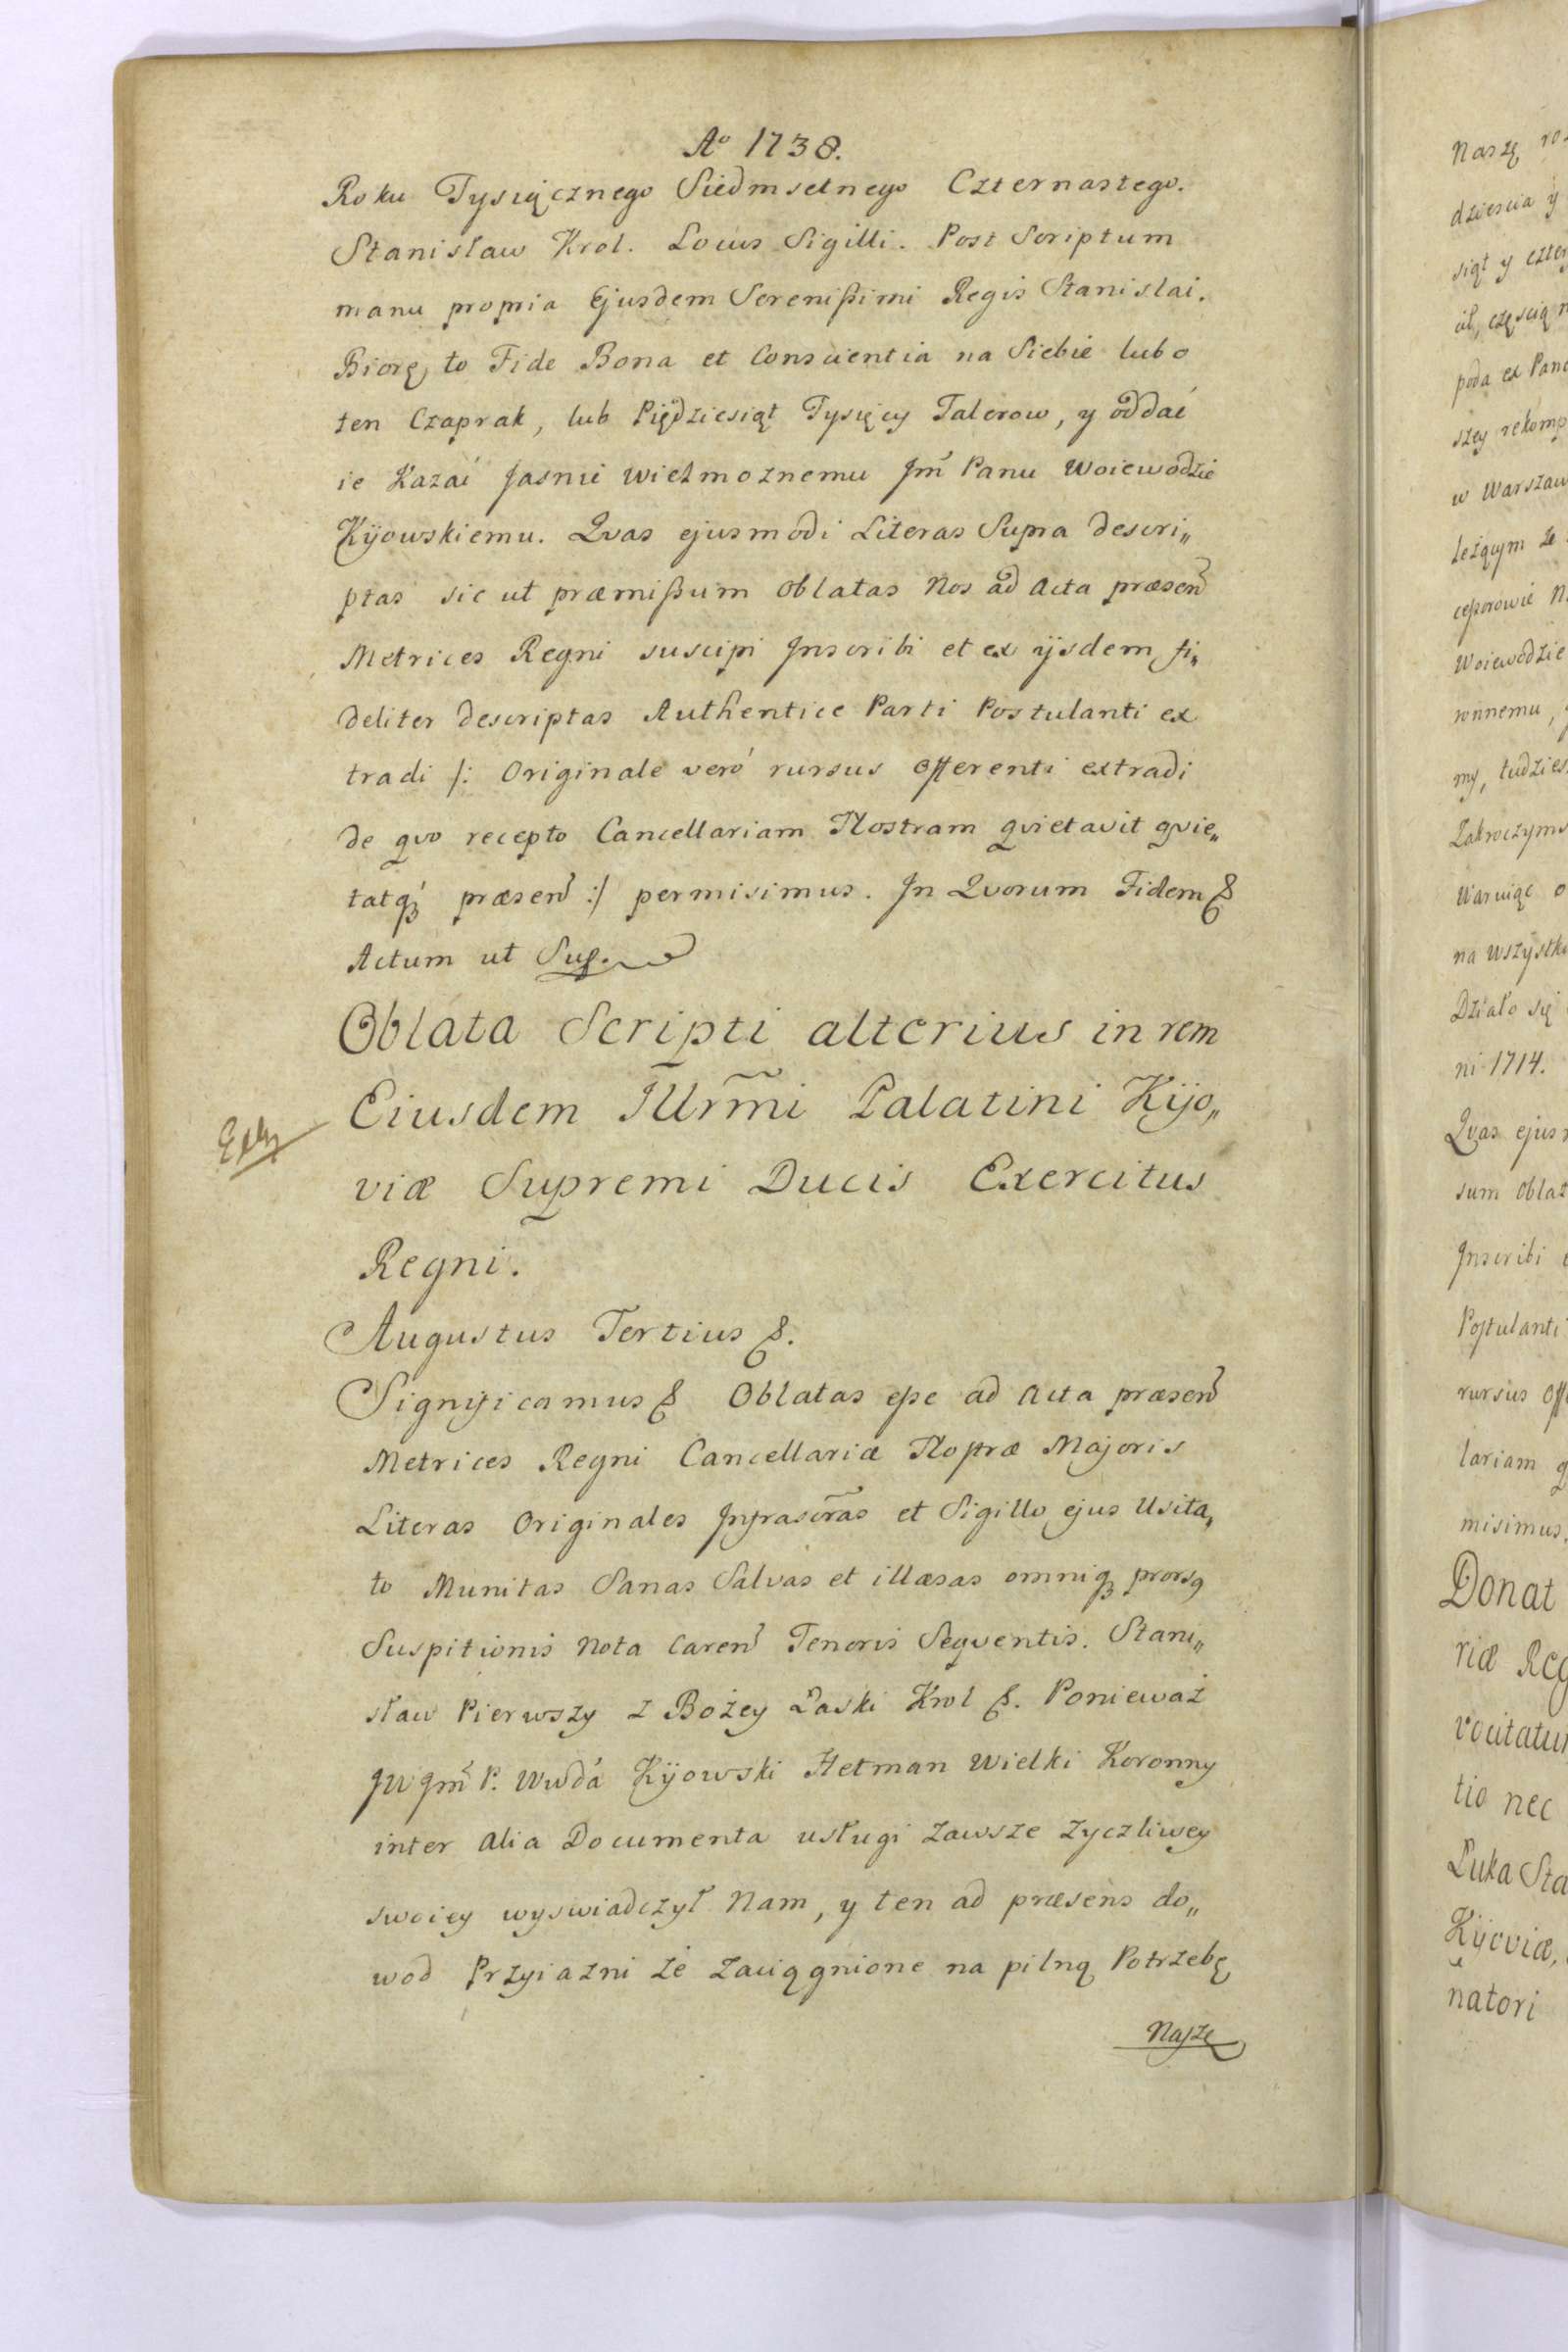 Aº 1738.
Roku Tysiącznego Siedmsetnego Czternastego.
Stanisław Krol. Locus Sigilli. Post Scriptum
manu propria Ejusdem Serenißimi Regis Stanislai.
Biorę to Fide Bona et Conscientia na Siebie lubo
ten Czaprak, lub Piędziesiąt Tysięcy Talerow, y oddać
ie Kazać Jasnie Wielmoznemu Jm̃ Panu Woiewodzie
Kÿowskiemu. Qvas ejusmodi Literas Supra descri„
ptas sic ut præmißum oblatas Nos ad Acta præsen̄
Metrices Regni suscipi Jnscribi et ex ijsdem fi„
deliter descriptas Authentice Parti Postulanti ex
tradi /: Originale veró rursus offerenti extradi
de qvo recepto Cancellariam Nostram qvietavit qvie„
tatqꝫ præsen̄ :/ permisimus. Jn Qvorum Fidem &
Actum ut Sup.
Oblata Scripti alterius in rem
Eiusdem Illrm̃i Palatini Kijo„
viæ Supremi Ducis Exercitus
Regni.
Augustus Tertius &.
Significamus & Oblatas eße ad Acta præsen̄
Metrices Regni Cancellariæ Nostræ Majoris
Literas Originales Jnfrascr̃as et Sigillo ejus Usita„
to Munitas Sanas Salvas et illæsas omniqꝫ prorsꝰ
Suspitionis Nota Caren̄ Tenoris Seqventis. Stani„
sław Pierwszy z Bożey Łaski Krol &. Ponieważ
JW Jm̃ P. Wwda Kÿowski Hetman Wielki Koronny
inter alia Documenta usługi zawsze zyczliwey
swoiey wyswiadczył Nam, y ten ad præsens do„
wod Przyiazni że zaciągnione na pilną Potrzebę
Naszę
Naszę
dziescia y
siąt y czter
częscią
poda ex Pan
szey rekomp
w Warszaw
leżącym
Woiewodzie
my, tudzies
Zakroczyms
na wszystk
Działo się
ni 1714.
Qvas ejus
sum Oblat
Jnscribi
Postulanti
rursus off
lariam q
misimus.
Donat
riæ Reg
vocitatu
tio nec
Łuka Sta
Kÿoviæ,
natori